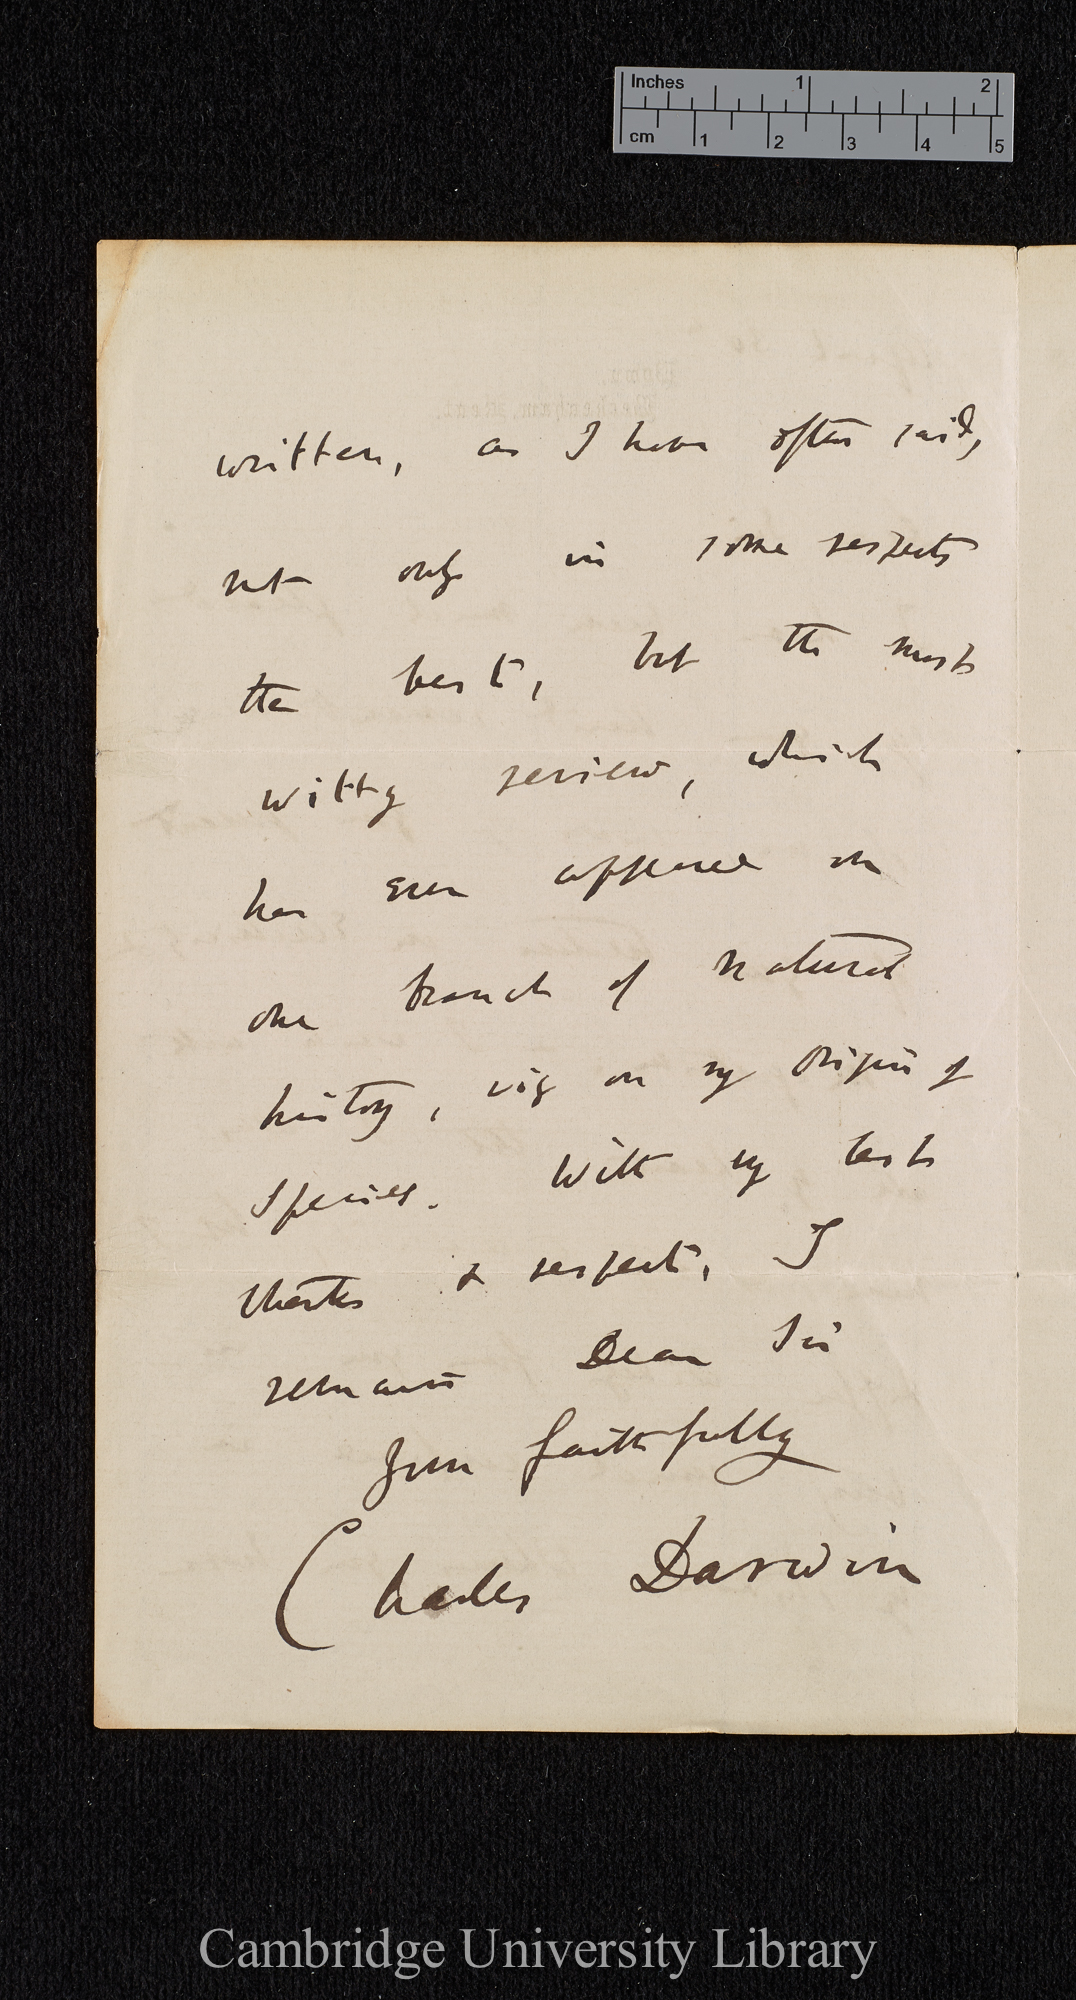 Inches 1 2
cm 1 2 3 4 5
Down,
Beckenham, Kent.
written, as I have often said,
not only in some respects
the best, but the most
witty review, which
has ever appeared on
one branch of natural
history, viz on my Origin of
Species. With my best
thanks & respect, I
remain Dear Sir
Yours faithfully
Charles Darwin
Cambridge University Library